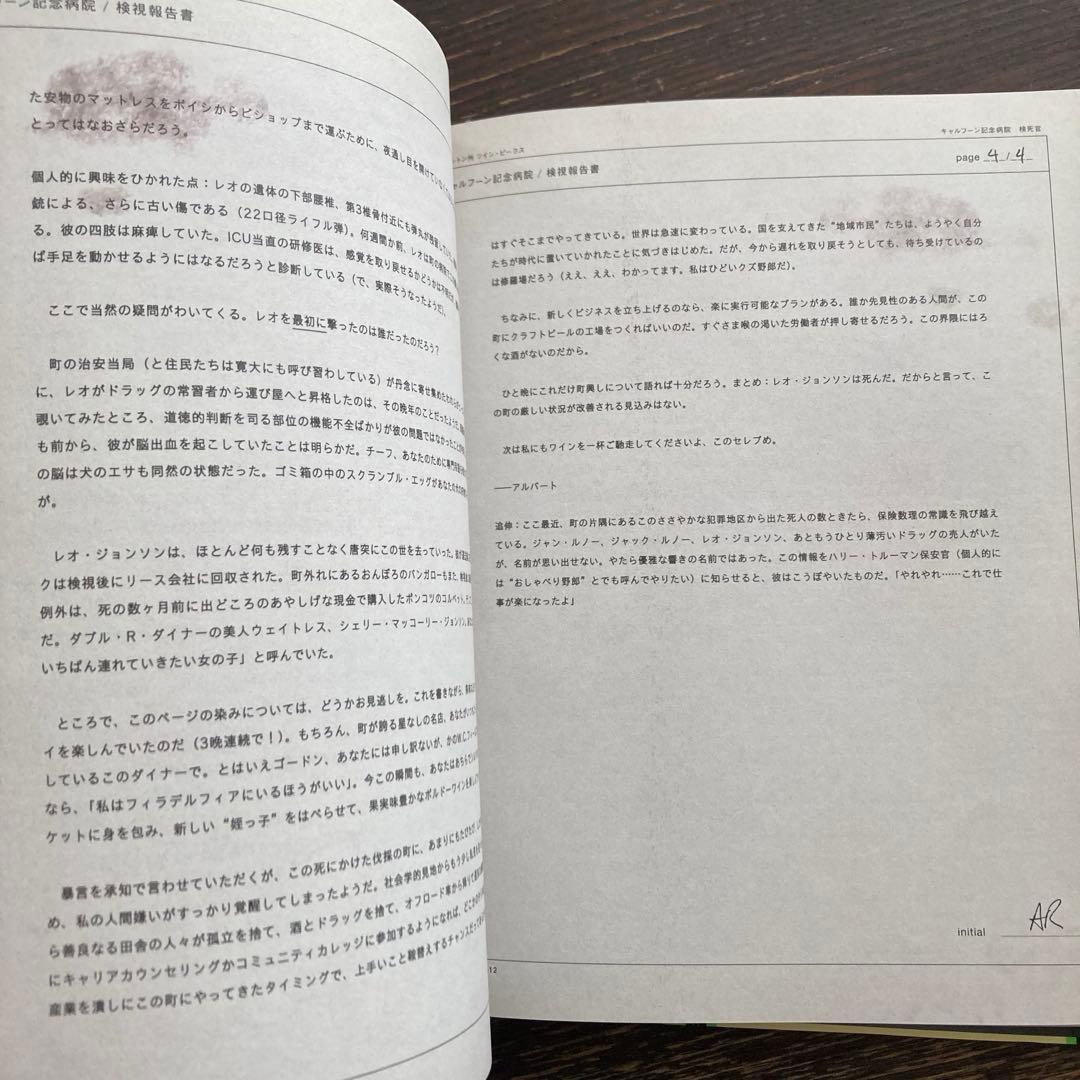 ーン記念病院 / 検視報告書
た安物のマットレスをボイシからビショップまで運ぶために、夜通し目を開けていな
とってはなおさらだろう。
個人的に興味をひかれた点：レオの遺体の下部腰椎、第3椎骨付近にも弾丸が
銃による、さらに古い傷である（22口径ライフル弾）。何週間か前、レオは町の
る。彼の四肢は麻痺していた。ICU当直の研修医は、感覚を取り戻せるかどうかは
ば手足を動かせるようにはなるだろうと診断している（で、実際そうなったようだ）。
ここで当然の疑問がわいてくる。レオを最初に撃ったのは誰だったのだろう？
町の治安当局（と住民たちは寛大にも呼び習わしている）が丹念に寄せ集めた
に、レオがドラッグの常習者から運び屋へと昇格したのは、その晩年のことだったようだ。
覗いてみたところ、道徳的判断を司る部位の機能不全ばかりが彼の問題ではなかったことが
も前から、彼が脳出血を起こしていたことは明らかだ。チーフ、あなたのために専門
の脳は犬のエサも同然の状態だった。ゴミ箱の中のスクランブル・エッグがあなたの
が。
レオ・ジョンソンは、ほとんど何も残すことなく唐突にこの世を去っていった。
クは検視後にリース会社に回収された。町外れにあるおんぼろのバンガローもまた、
例外は、死の数ヶ月前に出どころのあやしげな現金で購入したポンコツのコルベット。
だ。ダブル・R・ダイナーの美人ウェイトレス、シェリー・マッコーリー・ジョンソン。
いちばん連れていきたい女の子」と呼んでいた。
ところで、このページの染みについては、どうかお見逃しを。これを書きながら、
イを楽しんでいたのだ（3晩連続で！）。もちろん、町が誇る星なしの名店、あなたが
しているこのダイナーで。とはいえゴードン、あなたには申し訳ないが、かのW.C.フィー
なら、「私はフィラデルフィアにいるほうがいい」。今この瞬間も、あなたはあちらで
ケットに身を包み、新しい“姪っ子”をはべらせて、果実味豊かなボルドーワインを
暴言を承知で言わせていただくが、この死にかけた伐採の町に、あまりにもたびたび、
め、私の人間嫌いがすっかり覚醒してしまったようだ。社会学的見地からもう少し
ら善良なる田舎の人々が孤立を捨て、酒とドラッグを捨て、オフロード車から降りて
にキャリアカウンセリングかコミュニティカレッジに参加するようになれば、どこかの
産業を潰しにこの町にやってきたタイミングで、上手いこと鞍替えするチャンスだって
トン州 ツイン・ピークス
キャルフーン記念病院 検死官
ャルフーン記念病院 / 検視報告書
page 4 / 4
はすぐそこまでやってきている。世界は急速に変わっている。国を支えてきた“地域市民”たちは、ようやく自分
たちが時代に置いていかれたことに気づきはじめた。だが、今から遅れを取り戻そうとしても、待ち受けているの
は修羅場だろう（ええ、ええ、わかってます。私はひどいクズ野郎だ）。
ちなみに、新しくビジネスを立ち上げるのなら、楽に実行可能なプランがある。誰か先見性のある人間が、この
町にクラフトビールの工場をつくればいいのだ。すぐさま喉の渇いた労働者が押し寄せるだろう。この界隈にはろ
くな酒がないのだから。
ひと晩にこれだけ町興しについて語れば十分だろう。まとめ：レオ・ジョンソンは死んだ。だからと言って、こ
の町の厳しい状況が改善される見込みはない。
次は私にもワインを一杯ご馳走してくださいよ、このセレブめ。
——アルバート
追伸：ここ最近、町の片隅にあるこのささやかな犯罪地区から出た死人の数ときたら、保険数理の常識を飛び越え
ている。ジャン・ルノー、ジャック・ルノー、レオ・ジョンソン、あともうひとり薄汚いドラッグの売人がいた
が、名前が思い出せない。やたら優雅な響きの名前ではあった。この情報をハリー・トルーマン保安官（個人的に
は“おしゃべり野郎”とでも呼んでやりたい）に知らせると、彼はこうぼやいたものだ。「やれやれ……これで仕
事が楽になったよ」
initial AR
12